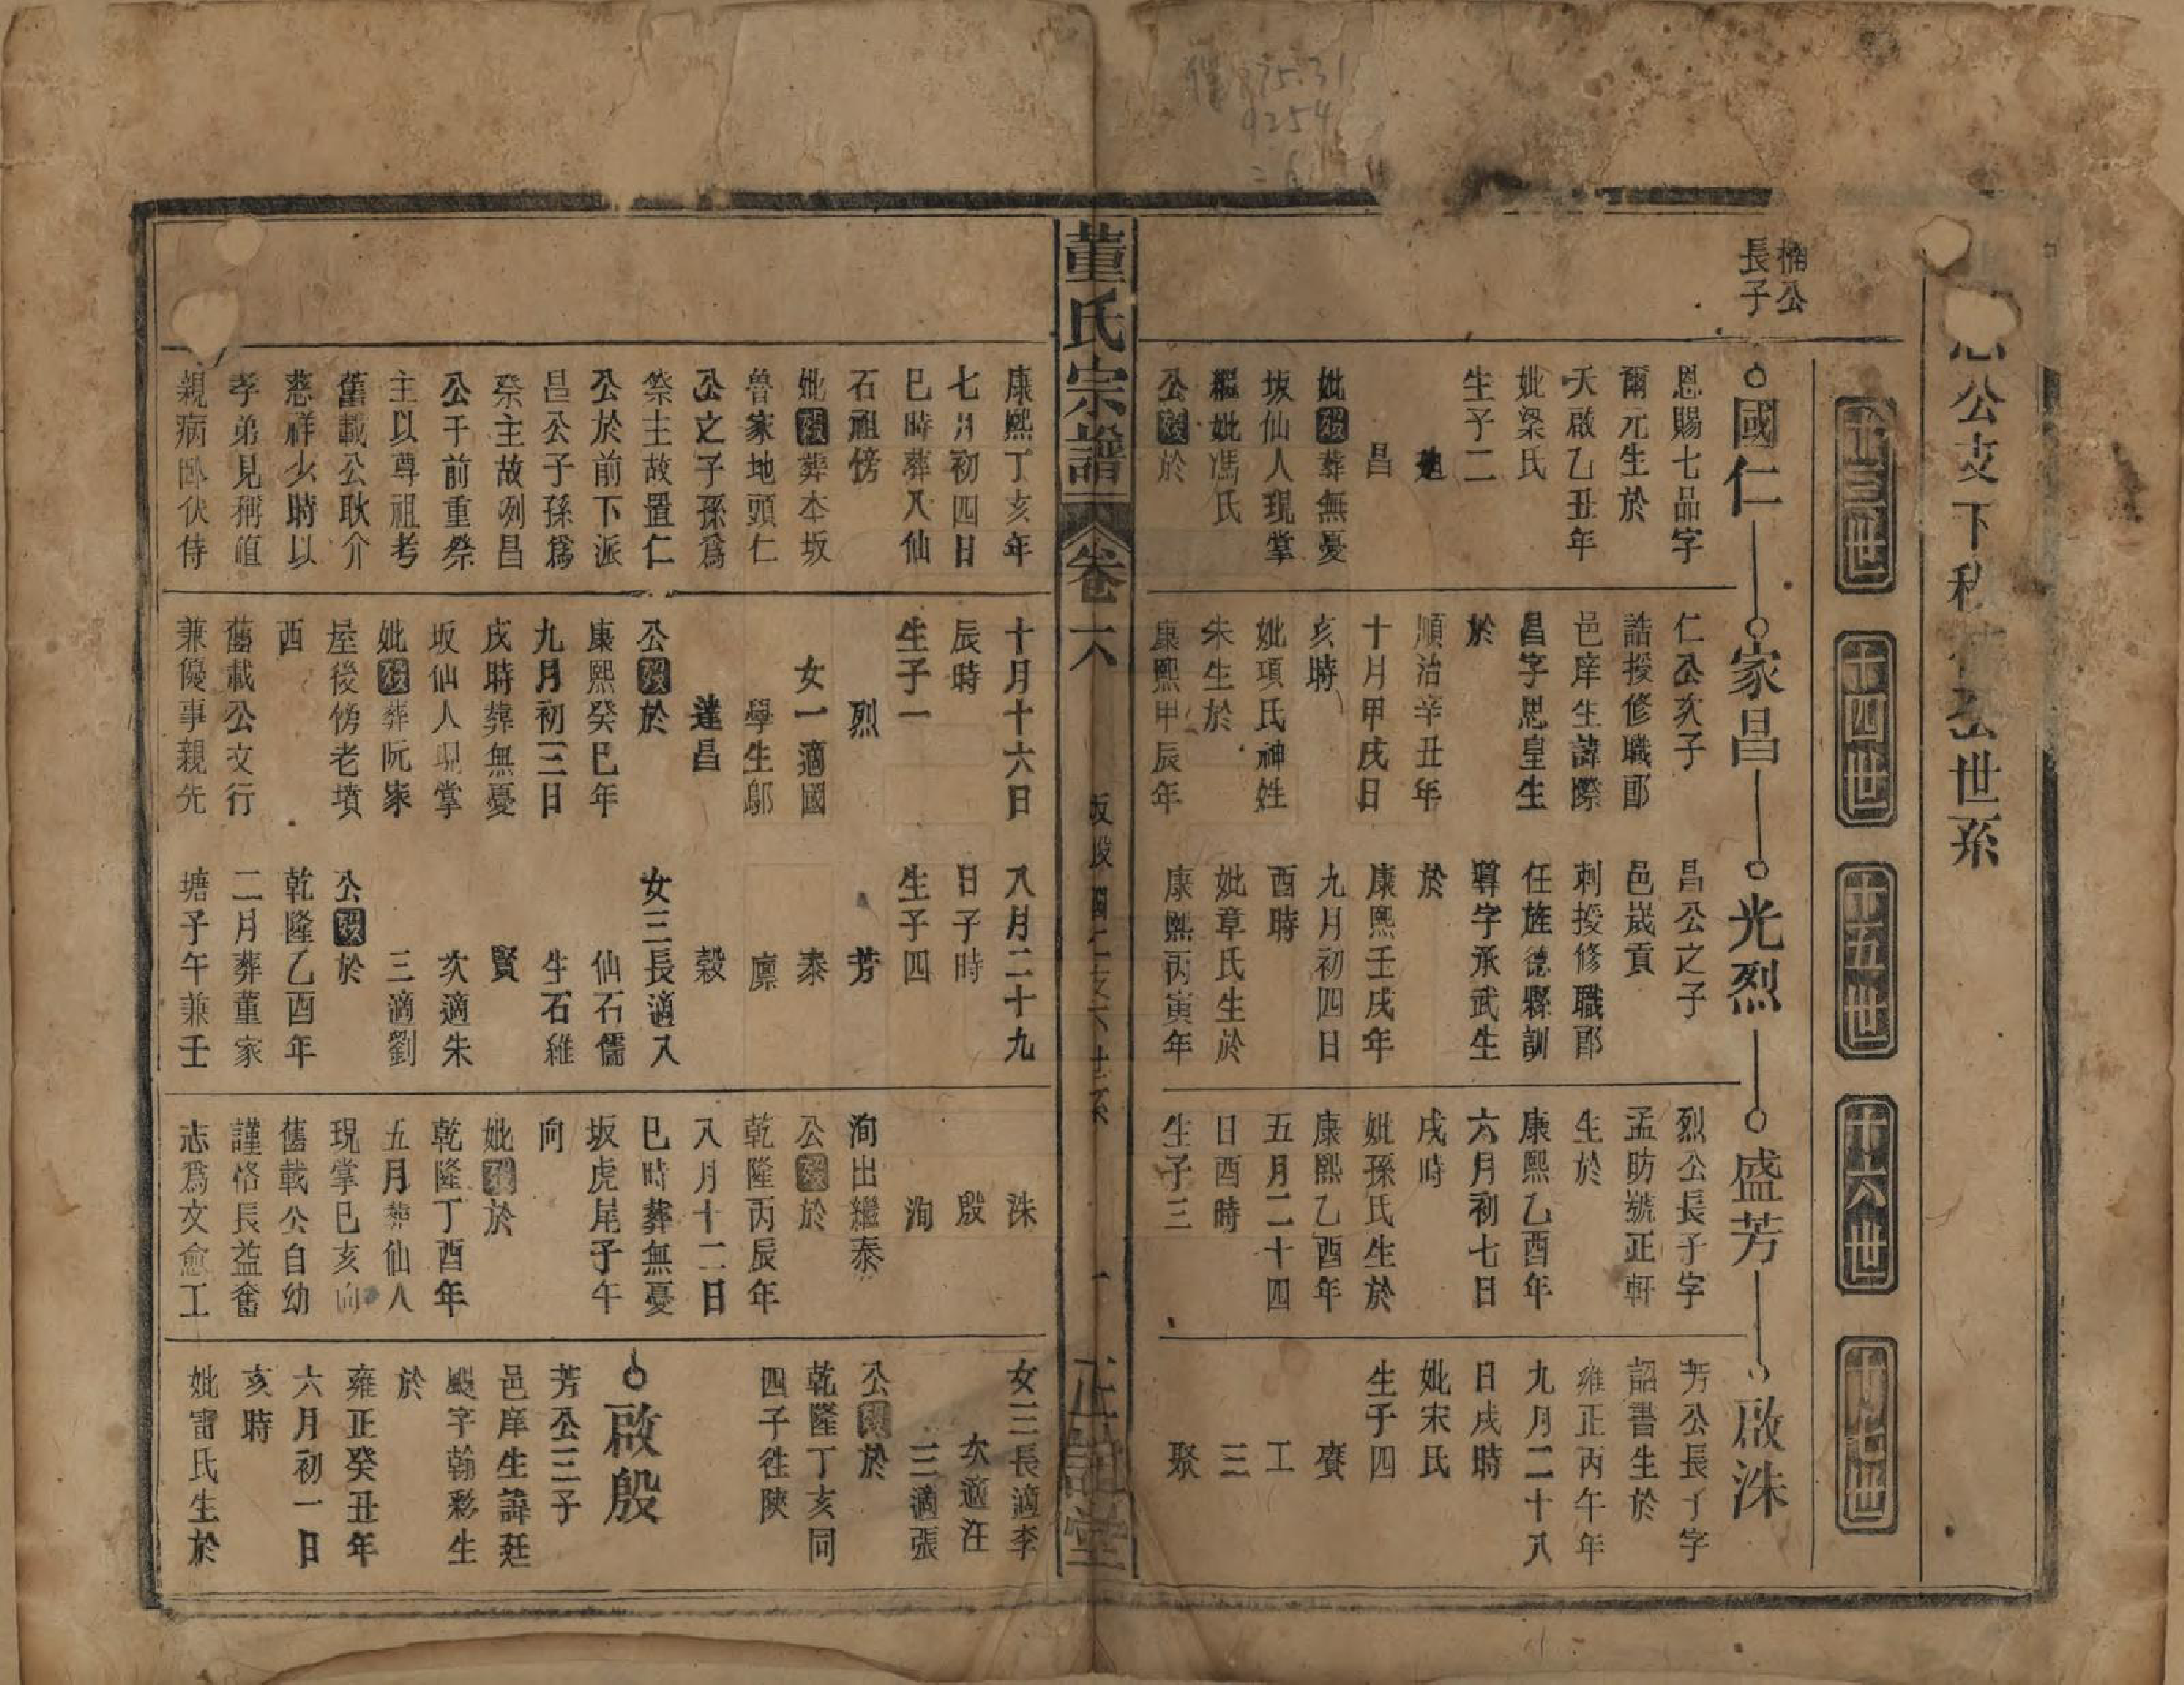 公支下
世系
十三世
十四世
十五世
十六世
十七世
楠公
長子
國仁
恩賜七品字
爾元生於
天啟乙丑年
妣梁氏
生子二
昌
妣歿葬無憂
坂仙人現掌
繼妣馮氏
公歿於
康熙丁亥年
七月初四日
巳時葬入仙
石祖傍
妣歿葬本坂
魯家地頭仁
公之子孫爲
祭主故置仁
公於前下派
昌公子孫爲
祭主故列昌
公于前重祭
主以尊祖考
舊載公耿介
慈祥少時以
孝弟見稱值
親病卧伏侍
家昌
仁公次子
誥授修職郎
邑庠生諱際
昌字思皇生
於
順治辛丑年
十月甲戌日
亥時
妣項氏神姓
朱生於
康熙甲辰年
十月十六日
辰時
生子一
烈
女一適國
學生鄔
蓮昌
公歿於
康熙癸巳年
九月初三日
戌時葬無憂
坂仙人現掌
妣歿葬阮家
屋後傍老墳
西
舊載公文行
兼優事親先
光烈
昌公之子
邑歲貢
勅授修職郎
任旌德縣訓
導字承武生
於
康熙壬戌年
九月初四日
酉時
妣章氏生於
康熙丙寅年
八月二十九
日子時
生子四
芳
泰
廪
穀
女三長適入
仙石儒
生石維
賢
次適朱
三適劉
公歿於
乾隆乙酉年
二月葬董家
塘子午兼壬
盛芳
烈公長子字
孟昉號正軒
生於
康熙乙酉年
六月初七日
戌時
妣孫氏生於
康熙乙酉年
五月二十四
日酉時
生子三
洙
殷
洵
洵出繼泰
公歿於
乾隆丙辰年
八月十二日
巳時葬無憂
坂虎尾子午
向
妣歿於
乾隆丁酉年
五月葬仙人
現掌巳亥向
舊載公自幼
謹恪長益奮
志爲文愈工
啟洙
芳公長子字
詔書生於
雍正丙午年
九月二十八
日戌時
妣宋氏
生子四
賽
工
三
聚
女三長適李
次適汪
三適張
公歿於
乾隆丁亥同
四子徃陝
啟殷
芳公三子
邑庠生諱廷
颺字翰彩生
於
雍正癸丑年
六月初一日
亥時
妣雷氏生於
董氏宗譜
卷六
一
正誼堂